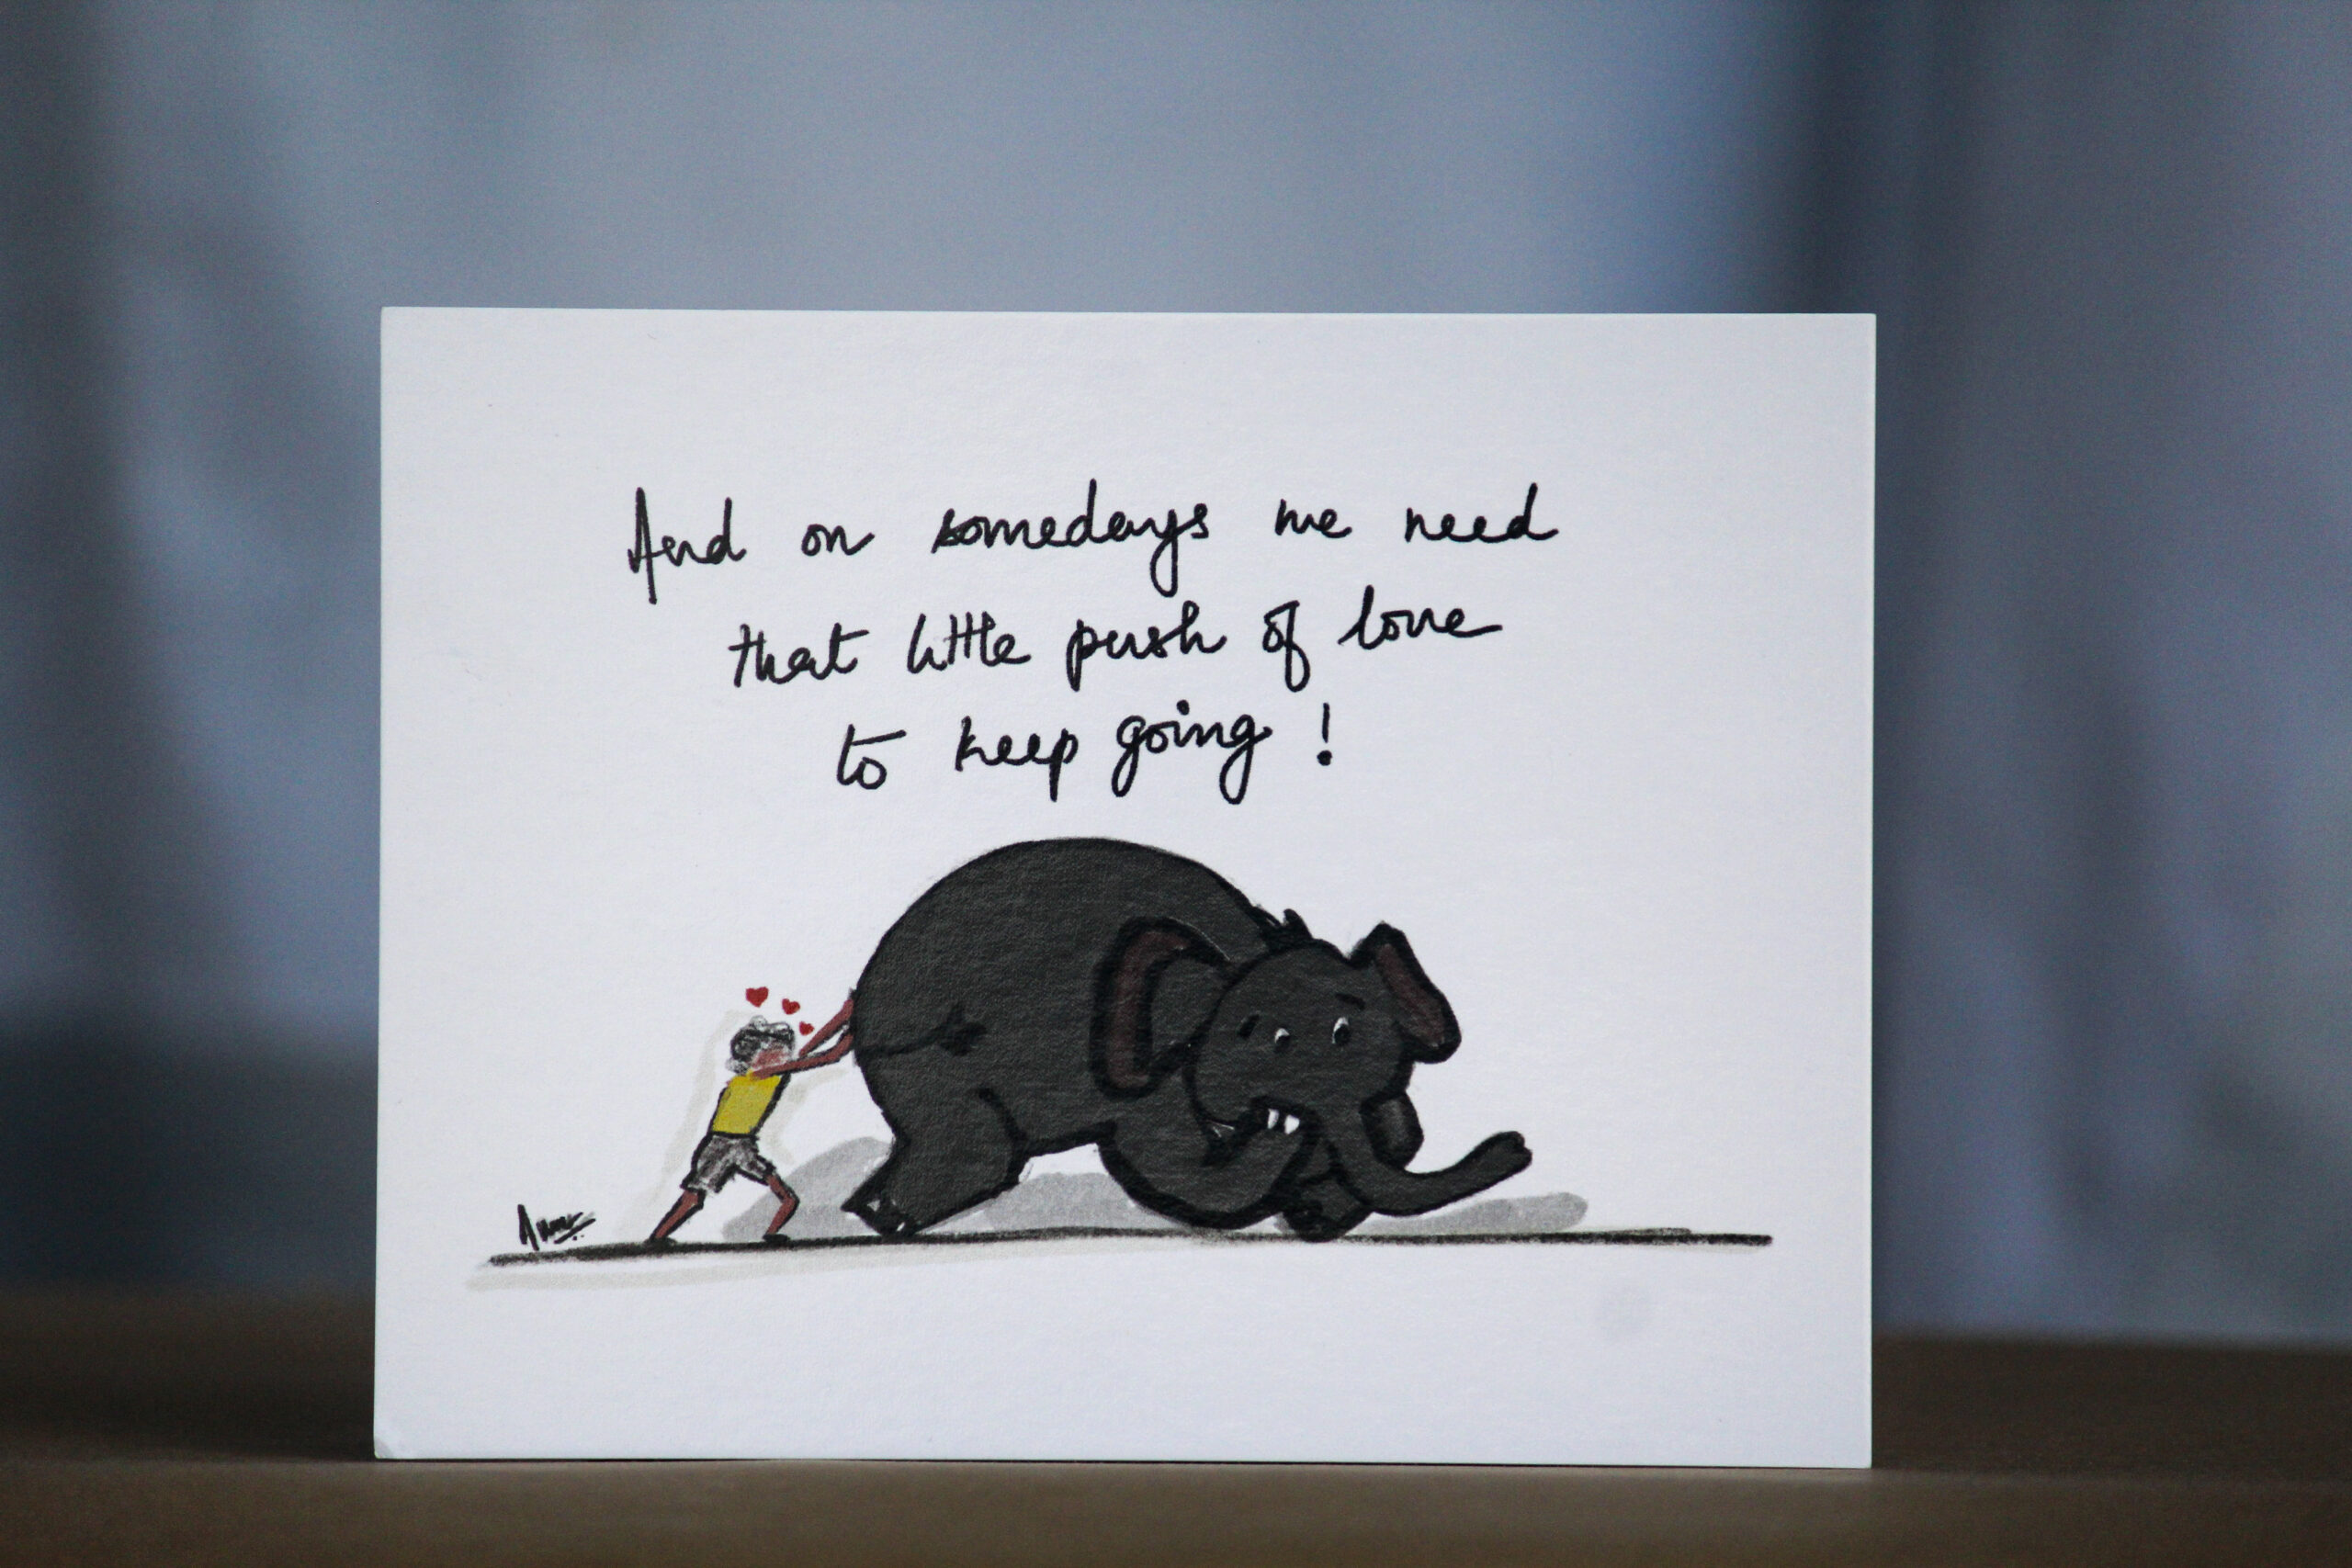 And on somedays we need
that little push of love
to keep going !